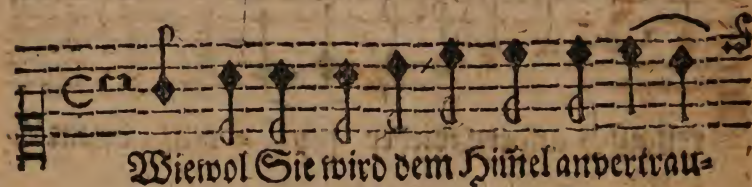 Wiewol Sie wird dem Him̃el anvertrau⸗